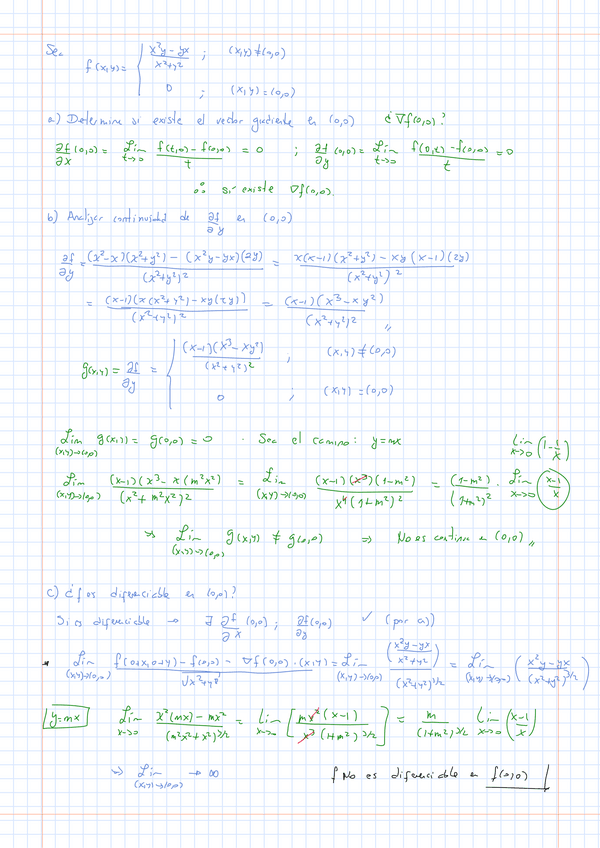 Sea
f(x,y) = { (x²y - yx)/(x²+y²) ; (x,y) ≠ (0,0)
0 ; (x,y) = (0,0)
a) Determine si existe el vector gradiente en (0,0) ¿∇f(0,0)?
∂f/∂x (0,0) = Lim t→0 (f(t,0) - f(0,0))/t = 0 ; ∂f/∂y (0,0) = Lim t→0 (f(0,t) - f(0,0))/t = 0
∴ si existe ∇f(0,0).
b) Analizar continuidad de ∂f/∂y en (0,0)
∂f/∂y = ((x²-x)(x²+y²) - (x²y-yx)(2y))/(x²+y²)² = (x(x-1)(x²+y²) - xy(x-1)(2y))/(x²+y²)²
= ((x-1)(x(x²+y²) - xy(2y)))/(x²+y²)² = ((x-1)(x³-xy²))/(x²+y²)² ,,
g(x,y) = ∂f/∂y = { ((x-1)(x³-xy²))/(x²+y²)² , (x,y) ≠ (0,0)
0 ; (x,y) = (0,0)
Lim (x,y)→(0,0) g(x,y) = g(0,0) = 0 · Sea el camino: y=mx Lim x→0 (1-1/x)
Lim (x,y)→(0,0) ((x-1)(x³-x(m²x²))/(x²+m²x²)² = Lim (x,y)→(0,0) ((x-1)(x³)(1-m²))/(x⁴(1+m²)²) = (1-m²)/(1+m²)² · Lim x→0 (x-1)/x
⇒ Lim (x,y)→(0,0) g(x,y) ≠ g(0,0) ⇒ No es continua en (0,0) ,,
c) ¿f es diferenciable en (0,0)?
Si es diferenciable → ∃ ∂f/∂x (0,0) ; ∂f/∂y (0,0) ✓ (por a))
* Lim (x,y)→(0,0) (f(0+x,0+y) - f(0,0) - ∇f(0,0)·(x,y))/√(x²+y²) = Lim (x,y)→(0,0) ((x²y-yx)/(x²+y²))/(x²+y²)^(1/2) = Lim (x,y)→(0,0) ((x²y-yx)/(x²+y²)^(3/2))
y=mx Lim x→0 (x²(mx)-mx²)/(m²x²+x²)^(3/2) = Lim x→0 [mx²(x-1)/(x³(1+m²)^(3/2))] = m/(1+m²)^(3/2) Lim x→0 ((x-1)/x)
⇒ Lim (x,y)→(0,0) → ∞ f No es diferenciable en f(0,0)